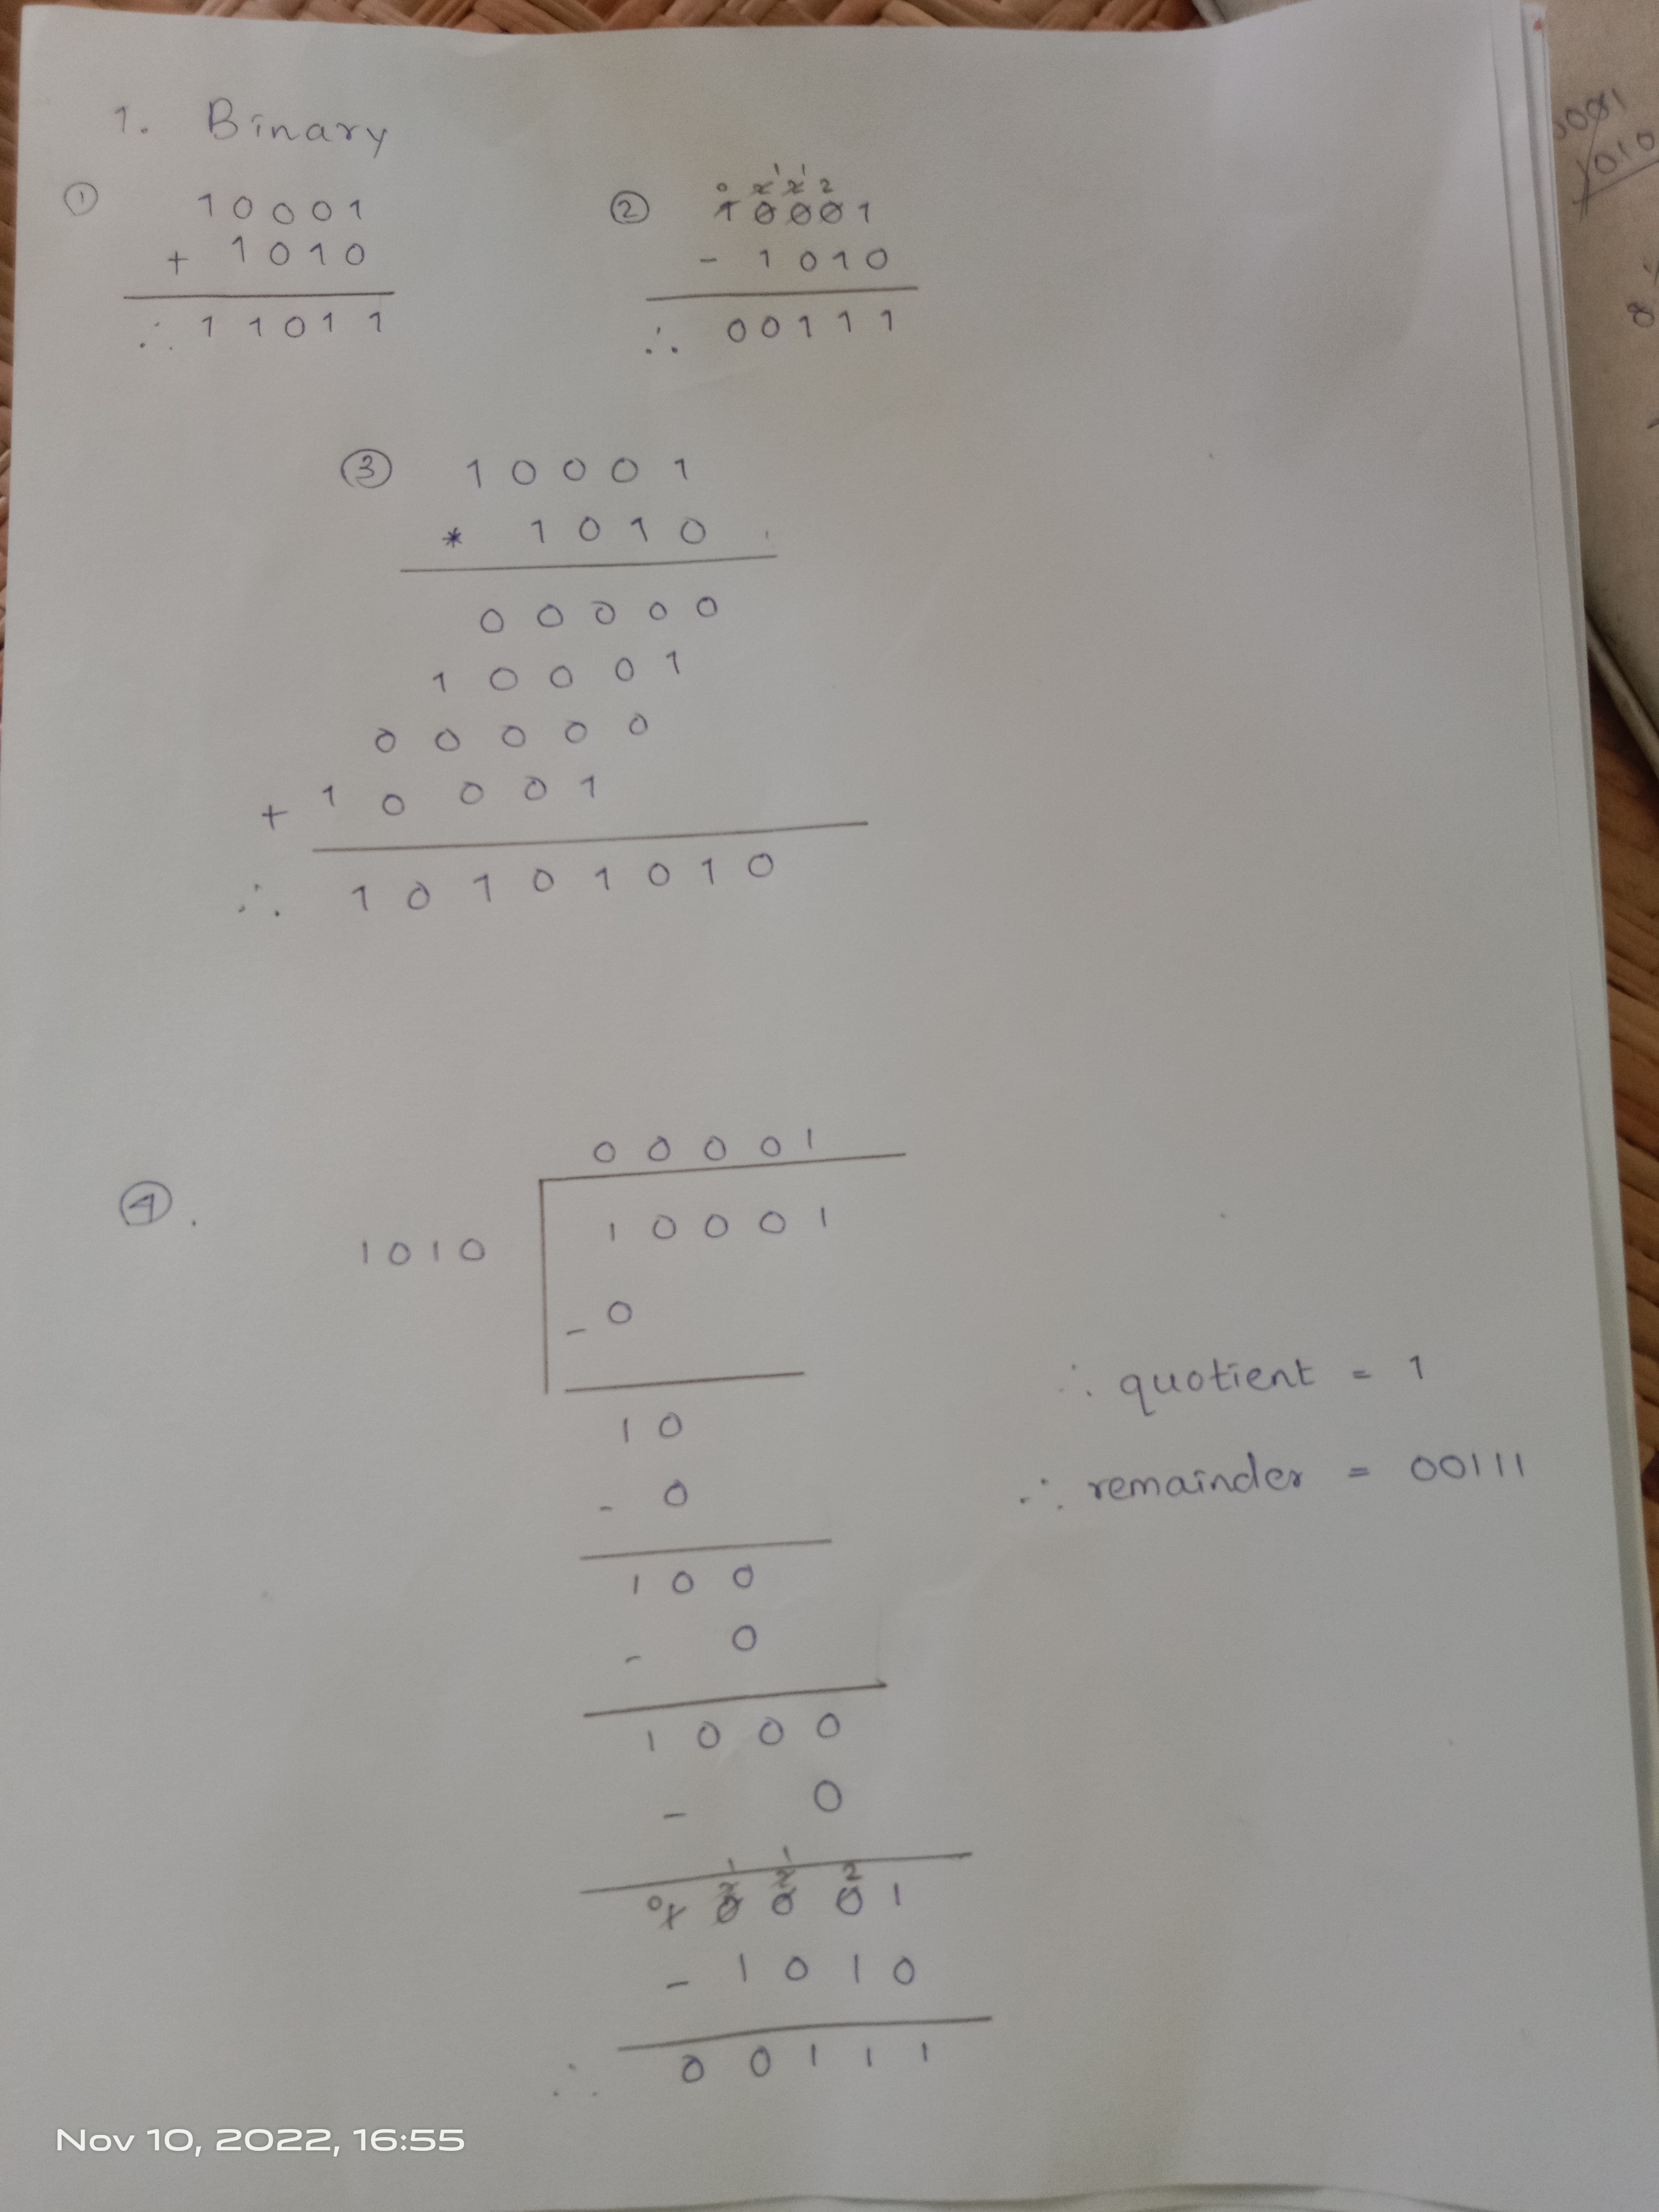 1. Binary
① 10001
+ 1010
∴ 11011
② 0 2̶ 1 2̶ 1 2
1̶0̶0̶0̶1
- 1010
∴ 00111
③ 10001
* 1010
00000
10001
00000
+ 10001
∴ 10101010
④.
00001
1010 10001
- 0
10
- 0
100
- 0
1000
- 0
1 1
0 2̶ 2̶ 2
1̶0̶0̶0̶1
- 1010
∴ 00111
∴ quotient = 1
∴ remainder = 00111
1010
8
Nov 10, 2022, 16:55